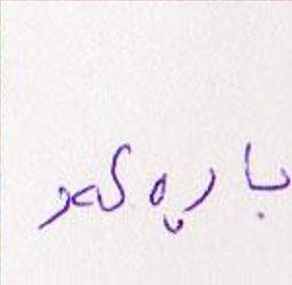 باڕەکەر